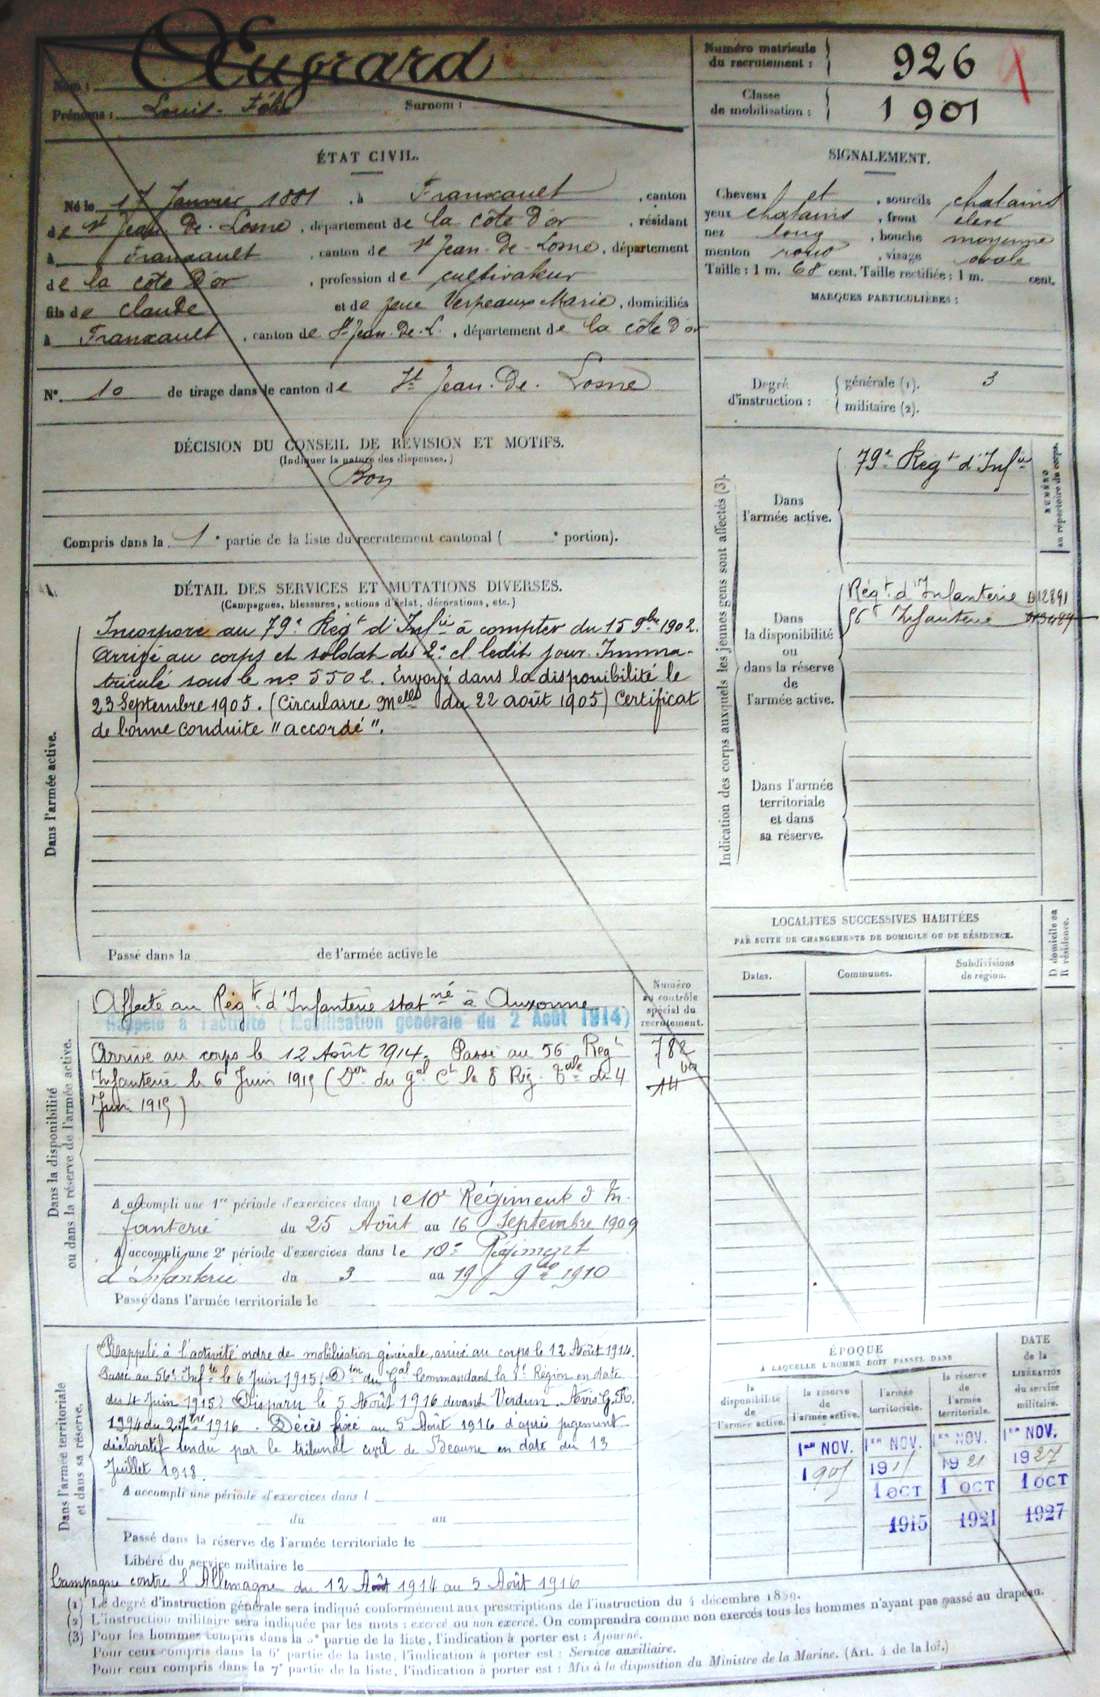 Nom : Duprard
Prénoms : Louis-Félix Surnom :
Numéro matricule du recrutement : 926
Classe de mobilisation : 1901
ÉTAT CIVIL.
Né le 17 Janvier 1881, à Franxault, canton
de St Jean-de-Losne, département de la Côte d'or, résidant
à Franxault, canton de St Jean-de-Losne, département
de la Côte d'or, profession de cultivateur
fils de Claude et de feue Verpeaux Marie, domiciliés
à Franxault, canton de St Jean-de-L., département de la Côte d'or
N° 10 de tirage dans le canton de St Jean-de-Losne
SIGNALEMENT.
Cheveux et, sourcils chatains
yeux chatains, front élevé
nez long, bouche moyenne
menton rond, visage ovale
Taille : 1 m. 68 cent. Taille rectifiée : 1 m. cent.
MARQUES PARTICULIÈRES :
Degré d'instruction : générale (1). 3
militaire (2).
DÉCISION DU CONSEIL DE RÉVISION ET MOTIFS.
(Indiquer la nature des dispenses.)
Bon
Compris dans la 1e partie de la liste du recrutement cantonal ( e portion).
DÉTAIL DES SERVICES ET MUTATIONS DIVERSES.
(Campagnes, blessures, actions d'éclat, décorations, etc.)
Dans l'armée active.
Incorporé au 79e Régt d'Infie à compter du 15 9bre 1902.
Arrivé au corps et soldat de 2e cl. ledit jour. Imma-
triculé sous le no 5502. Envoyé dans la disponibilité le
23 Septembre 1905. (Circulaire Melle du 22 août 1905) Certificat
de bonne conduite "accordé".
Passé dans la de l'armée active le
Indication des corps auxquels les jeunes gens sont affectés (3).
NUMÉRO au répertoire du corps.
Dans l'armée active.
79e Régt d'Infie
Dans la disponibilité ou dans la réserve de l'armée active.
Régt d'Infanterie
56e Infanterie
Dans l'armée territoriale et dans sa réserve.
LOCALITÉS SUCCESSIVES HABITÉES
PAR SUITE DE CHANGEMENTS DE DOMICILE OU DE RÉSIDENCE.
D domicile ou R résidence.
Dates. Communes. Subdivisions de région.
Dans la disponibilité ou dans la réserve de l'armée active.
Numéro au contrôle spécial du recrutement.
Affecté au Régt d'Infanterie statné à Auxonne
Rappelé à l'activité (Mobilisation générale du 2 Août 1914)
Arrivé au corps le 12 Août 1914. Passé au 56 Régt
Infanterie le 6 Juin 1915 (Don du Gal Ct la 8 Rég. du 4
Juin 1915)
782
A accompli une 1re période d'exercices dans le 10e Régiment d'In-
fanterie du 25 Août au 16 Septembre 1909
A accompli une 2e période d'exercices dans le 10e Régiment
d'Infanterie du 3 au 19 9bre 1910
Passé dans l'armée territoriale le
Dans l'armée territoriale et dans sa réserve.
Rappelé à l'activité ordre de mobilisation générale, arrivé au corps le 12 Août 1914.
Passé au 56e Infie le 6 Juin 1915. Don du Gal Commandant la 8e Région en date
du 4 Juin 1915. Disparu le 5 Août 1916 devant Verdun. Avis
1916. Décès fixé au 5 Août 1916 d'après jugement
déclaratif rendu par le tribunal civil de Beaune en date du 13
Juillet 1918.
A accompli une période d'exercices dans l
du au
Passé dans la réserve de l'armée territoriale le
Libéré du service militaire le
Campagne contre l'Allemagne du 12 Août 1914 au 5 Août 1916
ÉPOQUE
A LAQUELLE L'HOMME DOIT PASSER DANS
DATE de la LIBÉRATION du service militaire.
la disponibilité de l'armée active. la réserve de l'armée active. l'armée territoriale. la réserve de l'armée territoriale.
1er NOV. 1er NOV. 1er NOV. 1er NOV.
1905 1915 1921 1927
1 OCT 1 OCT 1 OCT
1915 1921 1927
(1) Le degré d'instruction générale sera indiqué conformément aux prescriptions de l'instruction du 4 décembre 1889.
(2) L'instruction militaire sera indiquée par les mots : exercé ou non exercé. On comprendra comme non exercés tous les hommes n'ayant pas passé au drapeau.
(3) Pour les hommes compris dans la 5e partie de la liste, l'indication à porter est : Ajourné.
Pour ceux compris dans la 6e partie de la liste, l'indication à porter est : Service auxiliaire.
Pour ceux compris dans la 7e partie de la liste, l'indication à porter est : Mis à la disposition du Ministre de la Marine. (Art. 4 de la loi.)